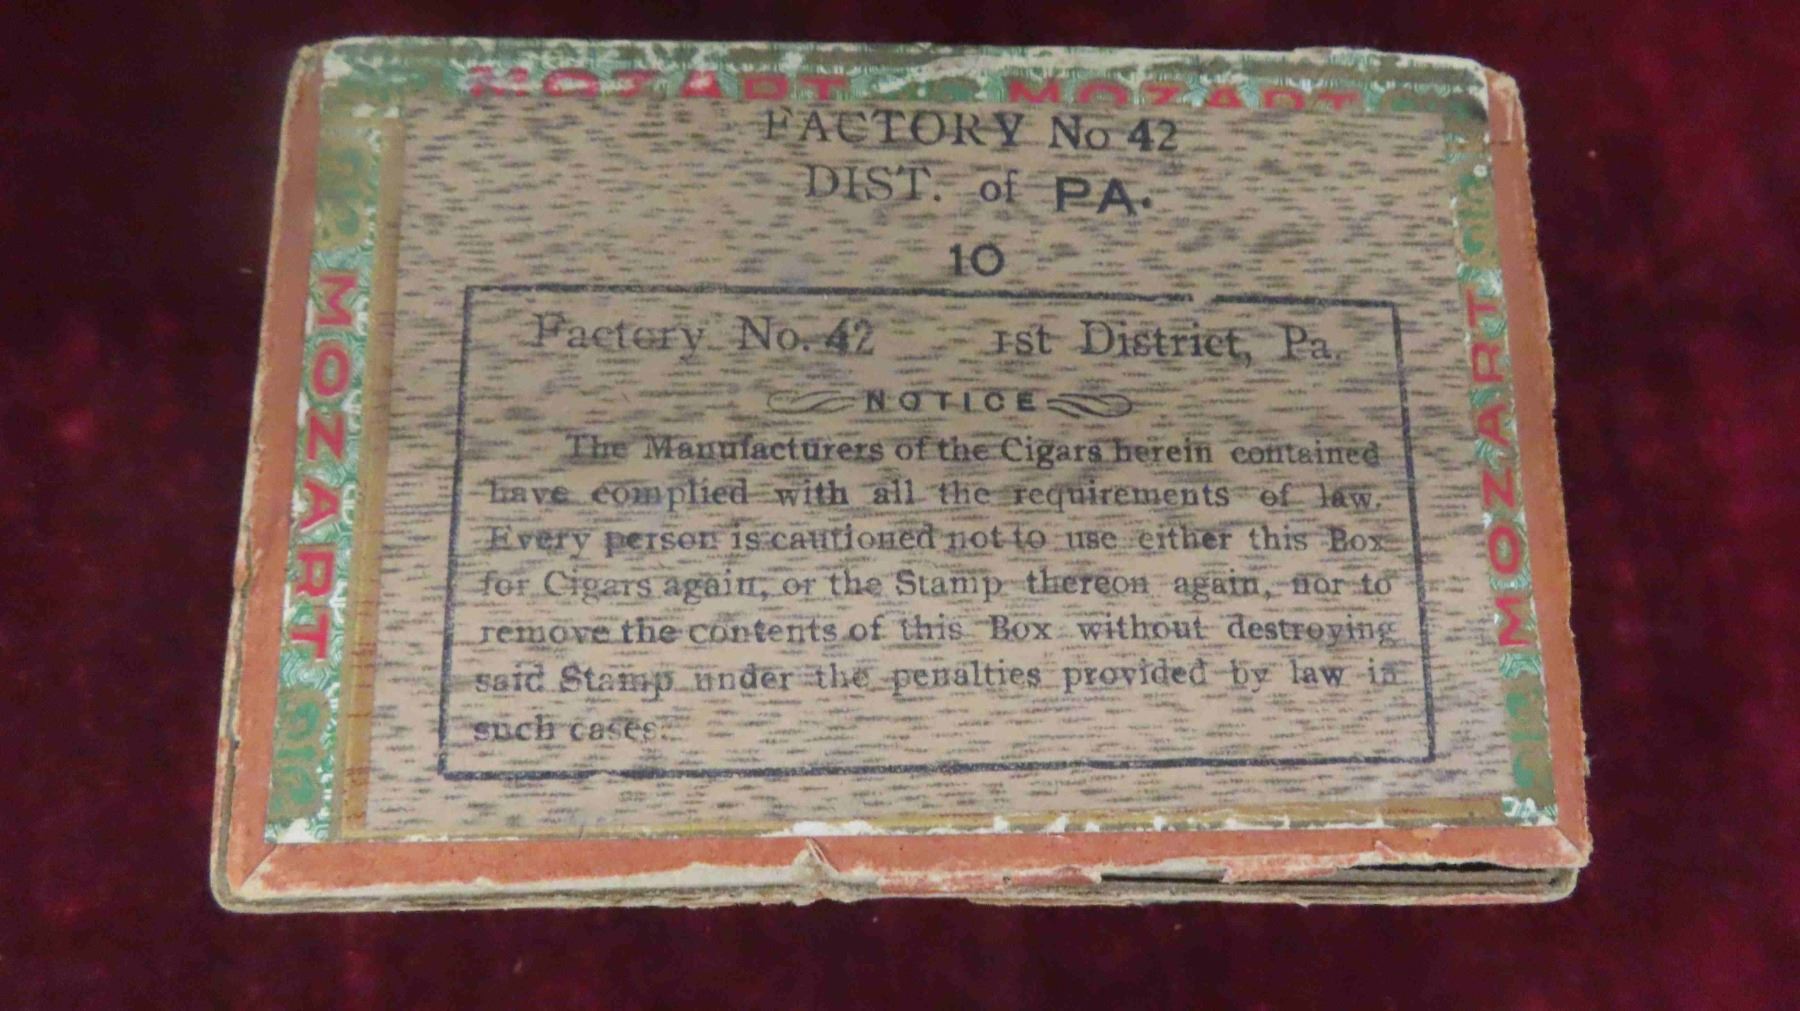 MOZART MOZART
FACTORY No 42
DIST. of PA.
10
Factory No. 42 1st District, Pa.
NOTICE
The Manufacturers of the Cigars herein contained
have complied with all the requirements of law.
Every person is cautioned not to use either this Box
for Cigars again, or the Stamp thereon again, nor to
remove the contents of this Box without destroying
said Stamp under the penalties provided by law in
such cases.
MOZART
MOZART